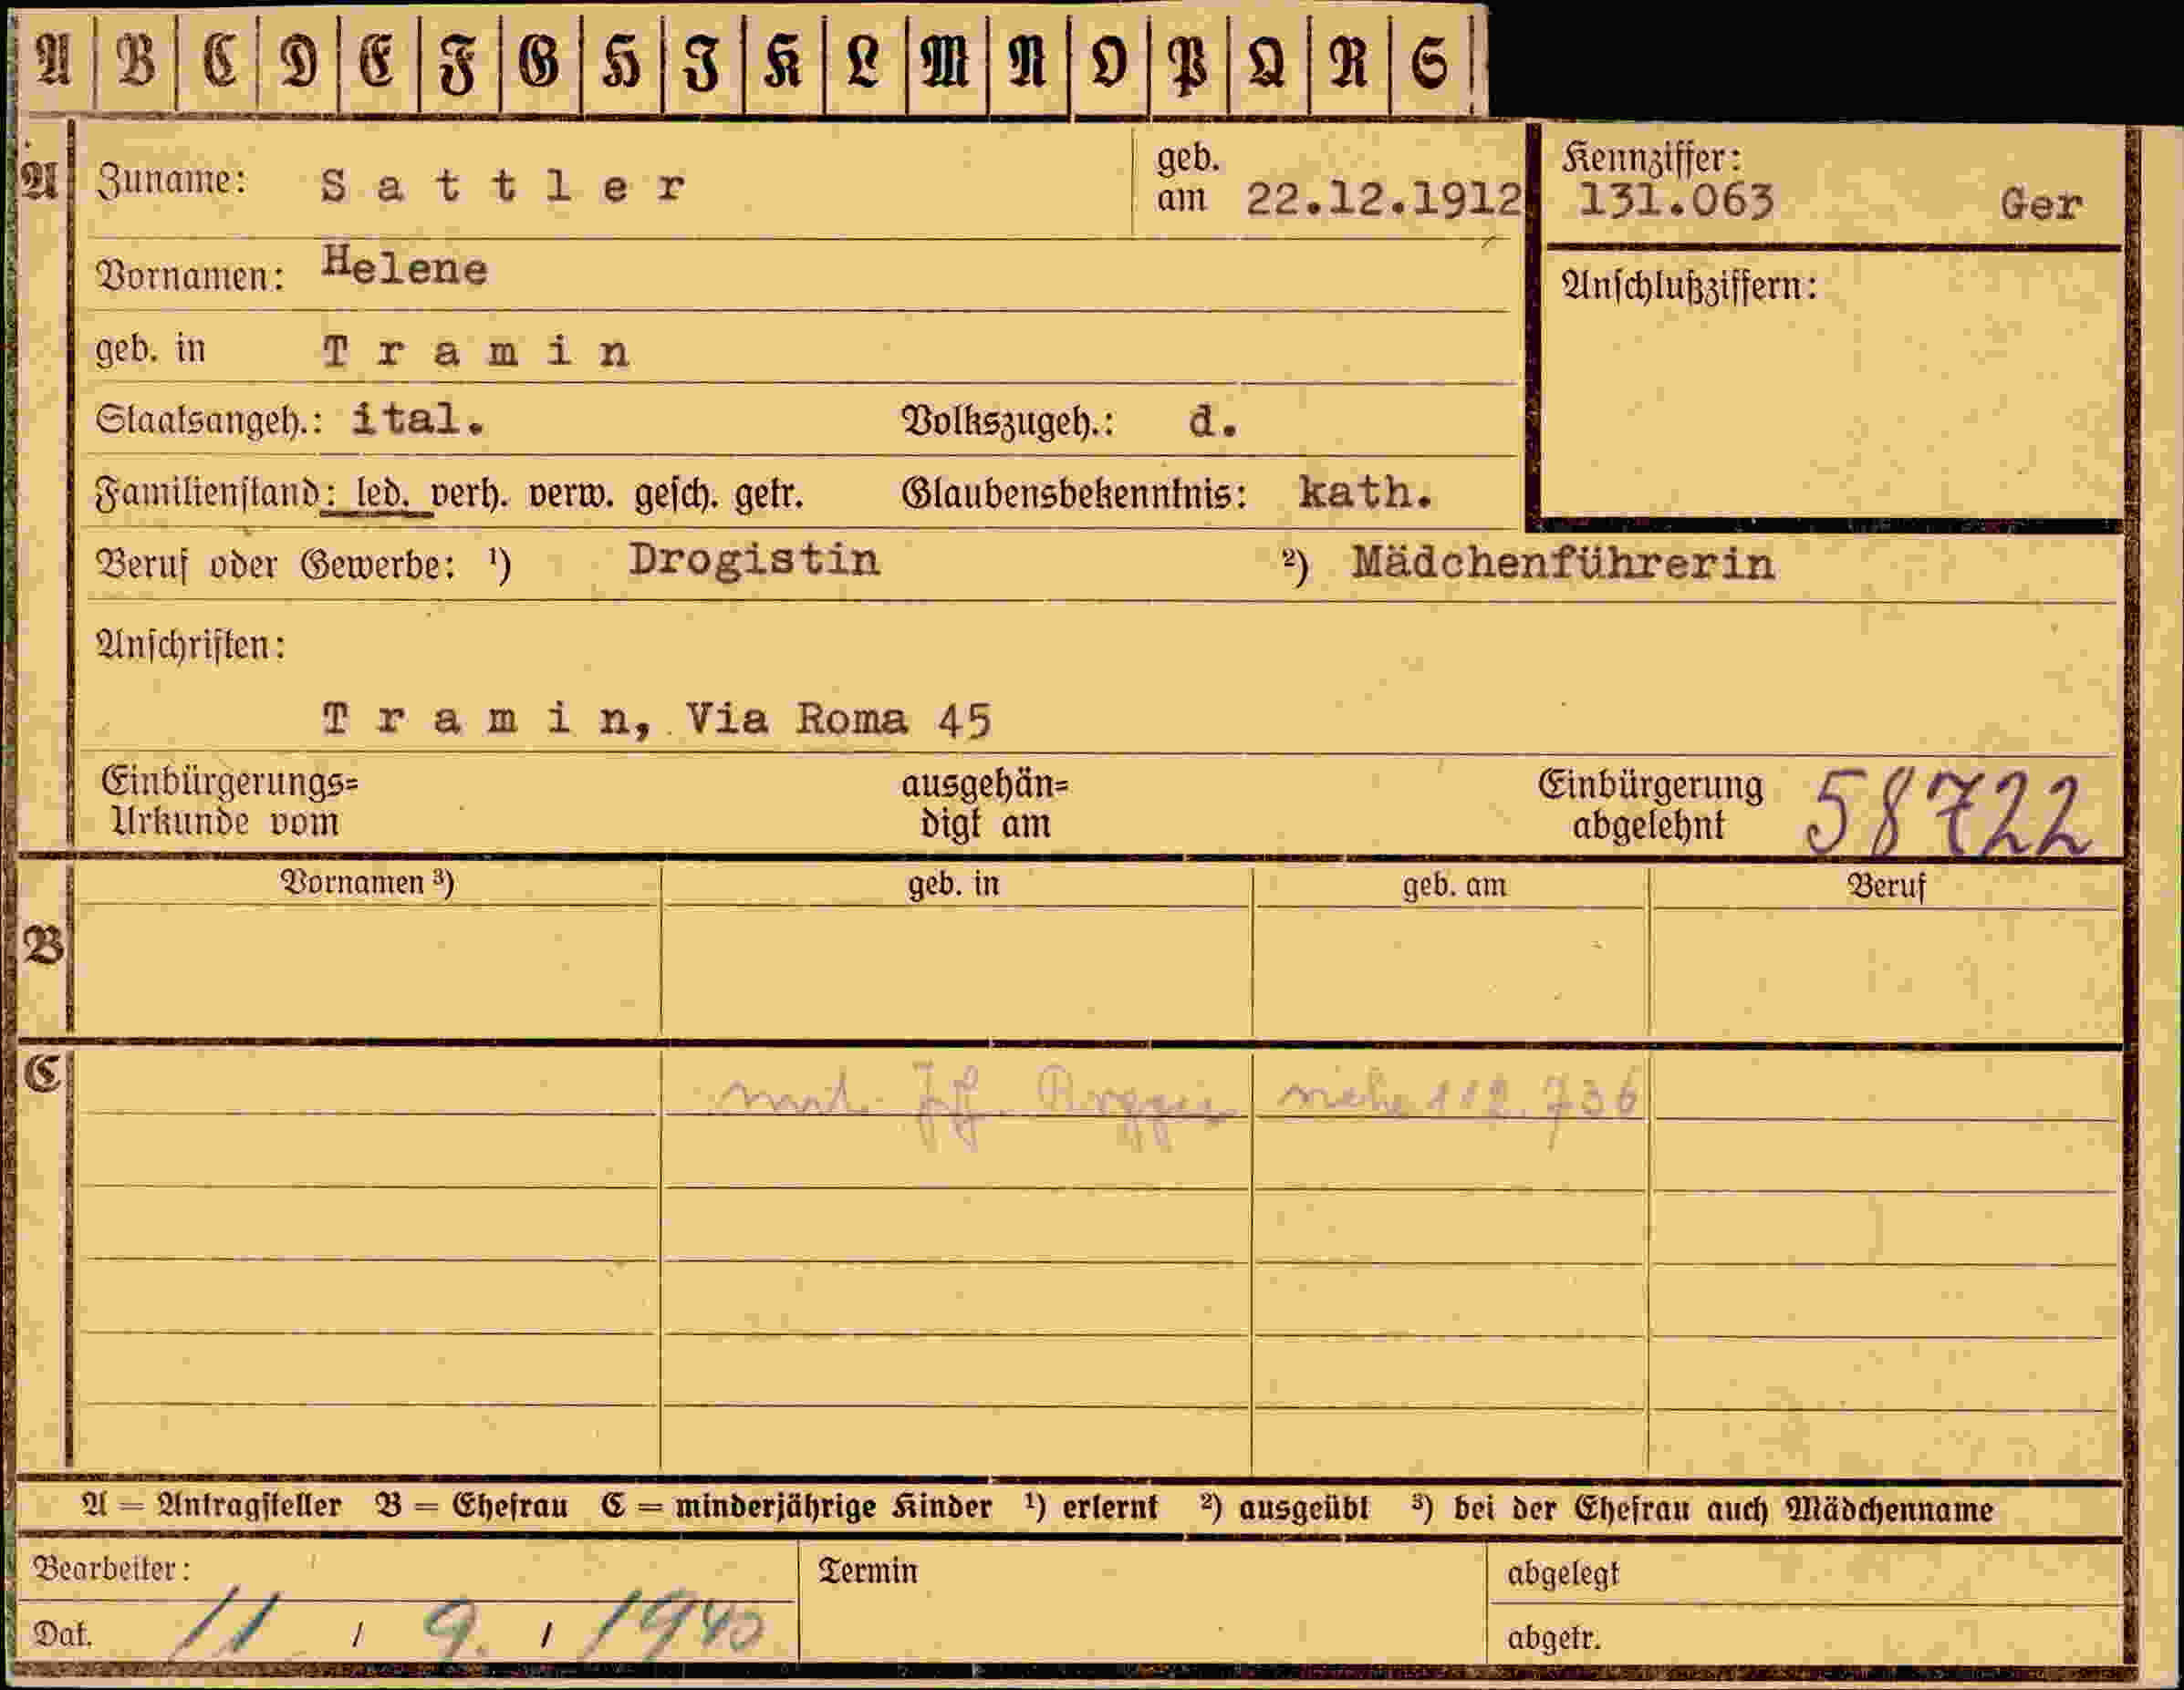 A B C D E F G H I K L M N O P Q R S
A
Zuname: Sattler
geb. am 22.12.1912
Kennziffer:
131.063 Ger
Vornamen: Helene
Anschlußziffern:
geb. in Tramin
Staatsangeh.: ital. Volkszugeh.: d.
Familienstand: led. verh. verw. gesch. getr. Glaubensbekenntnis: kath.
Beruf oder Gewerbe: ¹) Drogistin ²) Mädchenführerin
Anschriften:
Tramin, Via Roma 45
Einbürgerungs= ausgehän= Einbürgerung 58722
Urkunde vom digt am abgelehnt
B
Vornamen ³) geb. in geb. am Beruf
C
siehe 112.736
A = Antragsteller B = Ehefrau C = minderjährige Kinder ¹) erlernt ²) ausgeübt ³) bei der Ehefrau auch Mädchenname
Bearbeiter: Termin abgelegt
Dat. 11 / 9. / 1940 abgetr.